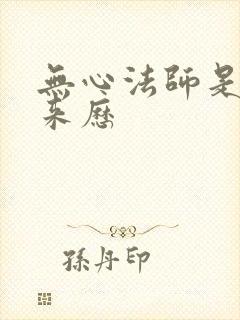 無心法師是
来歷
孫丹印